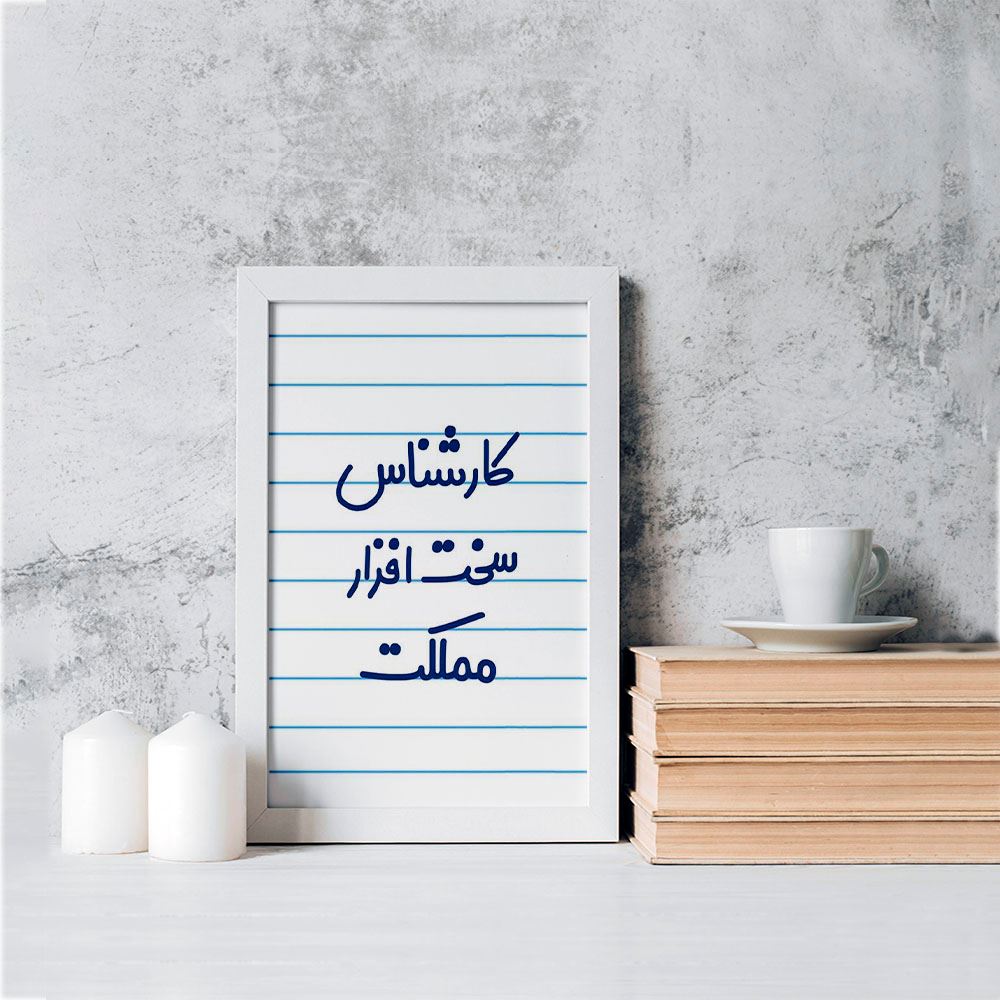 کارشناس
سخت افزار
مملکت